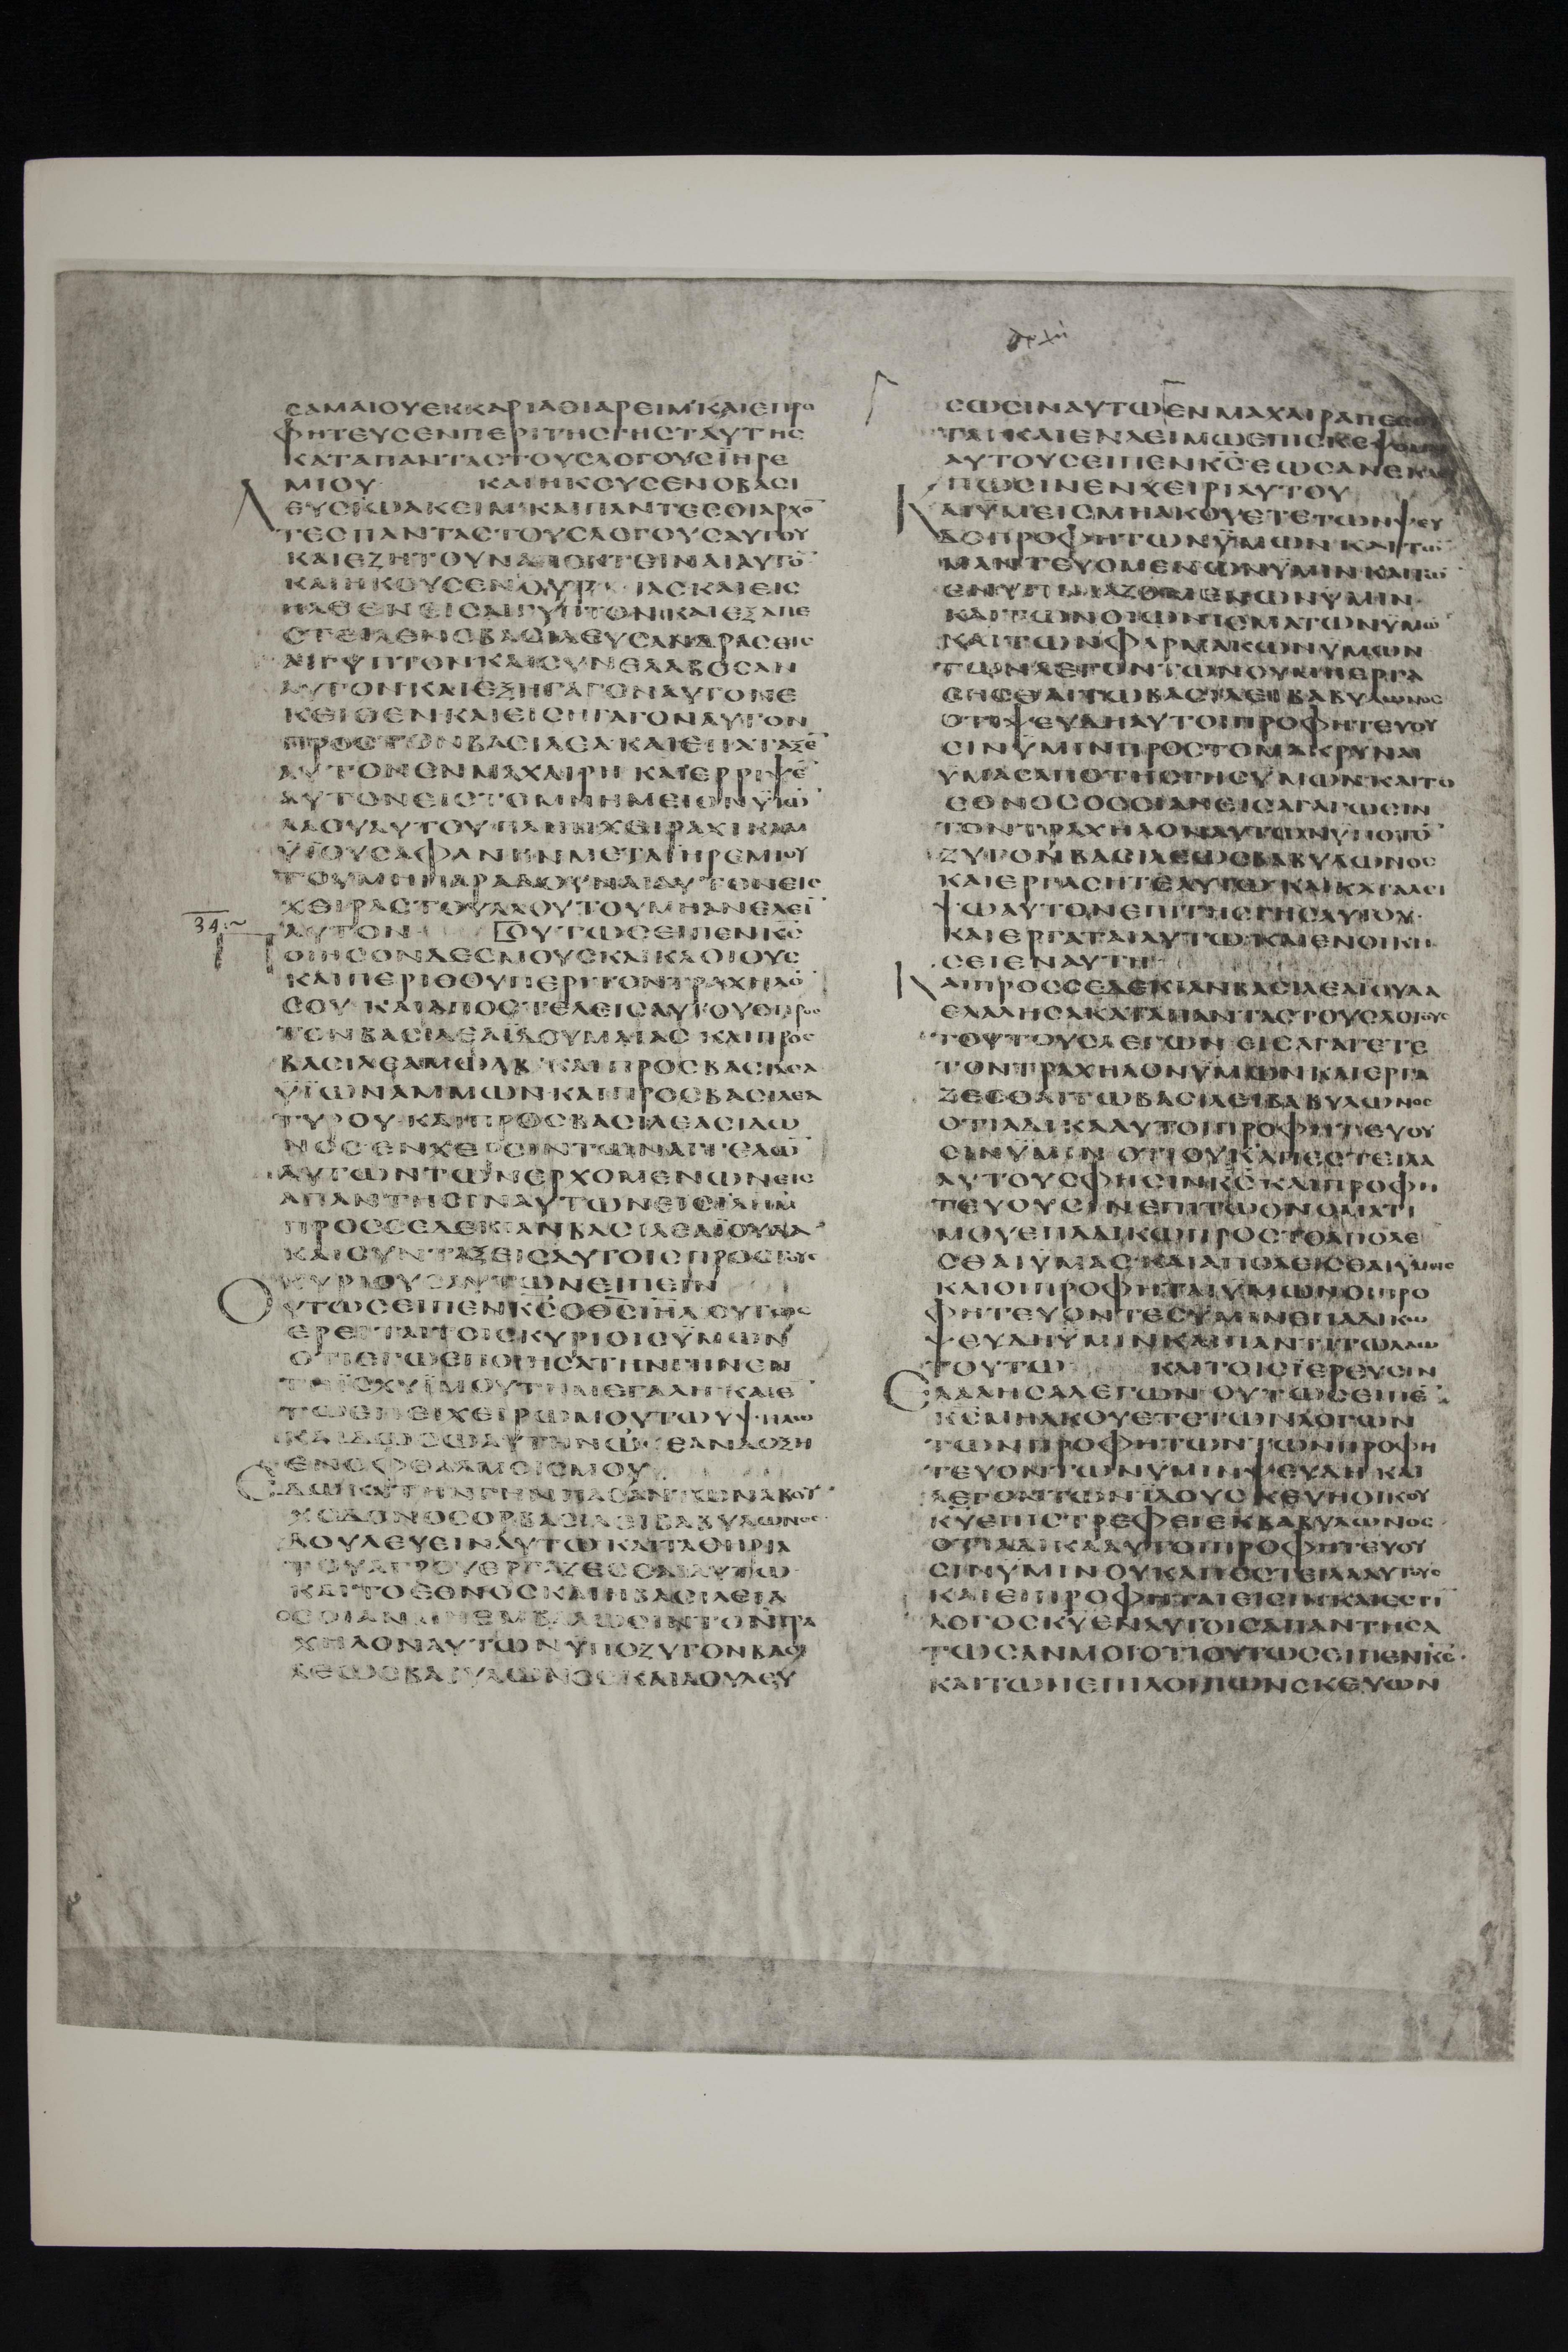 ϹΑΜΑΙΟΥΕΚΚΑΡΙΑΘΙΑΡΕΙΜΚΑΙΕΠΡΟ
ΦΗΤΕΥϹΕΝΠΕΡΙΤΗϹΓΗϹΤΑΥΤΗϹ
ΚΑΤΑΠΑΝΤΑϹΤΟΥϹΛΟΓΟΥϹΪΗΡΕ
ΜΙΟΥ ΚΑΙΗΚΟΥϹΕΝΟΒΑϹΙ
ΛΕΥϹΪΩΑΚΕΙΜΚΑΙΠΑΝΤΕϹΟΙΑΡΧΟ̅
ΤΕϹΠΑΝΤΑϹΤΟΥϹΛΟΓΟΥϹΑΥΤΟΥ
ΚΑΙΕΖΗΤΟΥΝΑΠΟΚΤΕΙΝΑΙΑΥΤΟ̅
ΚΑΙΗΚΟΥϹΕΝΟΥΡ ΙΑϹΚΑΙΕΙϹ
ΗΛΘΕΝΕΙϹΑΙΓΥΠΤΟΝΚΑΙΕΞΑΠΕ
ϹΤΕΙΛΕΝΟΒΑϹΙΛΕΥϹΑΝΔΡΑϹΕΙϹ
ΑΙΓΥΠΤΟΝΚΑΙϹΥΝΕΛΑΒΟϹΑΝ
ΑΥΤΟΝΚΑΙΕΞΗΓΑΓΟΝΑΥΤΟΝΕ
ΚΕΙΘΕΝΚΑΙΕΙϹΗΓΑΓΟΝΑΥΤΟΝ
ΠΡΟϹΤΟΝΒΑϹΙΛΕΑΚΑΙΕΠΑΤΑΞΕ̅
ΑΥΤΟΝΕΝΜΑΧΑΙΡΗΚΑΙΕΡΡΙΨΕ̅
ΑΥΤΟΝΕΙϹΤΟΜΝΗΜΕΙΟΝΫΙΩ̅
ΛΑΟΥΑΥΤΟΥΠΛΗΝΧΕΙΡΑΧΙΚΑΜ
ΫΙΟΥϹΑΦΑΝΗΝΜΕΤΑΪΗΡΕΜΙΟΥ
ΤΟΥΜΗΠΑΡΑΔΟΥΝΑΙΑΥΤΟΝΕΙϹ
ΧΕΙΡΑϹΤΟΥΛΑΟΥΤΟΥΜΗΑΝΕΛΕΙ̅
34
ΑΥΤΟΝ ΟΥΤΩϹΕΙΠΕΝΚϹ̅
ΠΟΙΗϹΟΝΔΕϹΜΟΥϹΚΑΙΚΛΟΙΟΥϹ
ΚΑΙΠΕΡΙΘΟΥΠΕΡΙΤΟΝΤΡΑΧΗΛΟ̅
ϹΟΥΚΑΙΑΠΟϹΤΕΛΕΙϹΑΥΤΟΥϹΠΡΟϹ
ΤΟΝΒΑϹΙΛΕΑΪΔΟΥΜΑΙΑϹΚΑΙΠΡΟϹ
ΒΑϹΙΛΕΑΜΩΑΒΚΑΙΠΡΟϹΒΑϹΙΛΕΑ
ΫΙΩΝΑΜΜΩΝΚΑΙΠΡΟϹΒΑϹΙΛΕΑ
ΤΥΡΟΥΚΑΙΠΡΟϹΒΑϹΙΛΕΑϹΙΔΩ
ΝΟϹΕΝΧΕΡϹΙΝΤΩΝΑΓΓΕΛΩ̅
ΑΥΤΩΝΤΩΝΕΡΧΟΜΕΝΩΝΕΙϹ
ΑΠΑΝΤΗϹΙΝΑΥΤΩΝΕΙϹΪΛΗΜ̅
ΠΡΟϹϹΕΔΕΚΙΑΝΒΑϹΙΛΕΑΪΟΥΔΑ
ΚΑΙϹΥΝΤΑΞΕΙϹΑΥΤΟΙϹΠΡΟϹΤΟΥϹ
ΚΥΡΙΟΥϹΑΥΤΩΝΕΙΠΕΙΝ
ΟΥΤΩϹΕΙΠΕΝΚϹ̅ΟΘϹ̅ΙΗΛ̅ΟΥΤΩϹ
ΕΡΕΙΤΑΙΤΟΙϹΚΥΡΙΟΙϹΫΜΩΝ
ΟΤΙΕΓΩΕΠΟΙΗϹΑΤΗΝΓΗΝΕΝ
ΤΗΪϹΧΥΪΜΟΥΤΗΜΕΓΑΛΗΚΑΙΕ̅
ΤΩΕΠΙΧΕΙΡΩΜΟΥΤΩΥΨΗΛΩ
ΚΑΙΔΩϹΩΑΥΤΗΝΩΕΑΝΔΟΞΗ
ΕΝΟΦΘΑΛΜΟΙϹΜΟΥ
ΕΔΩΚΑΤΗΝΓΗΝΠΑϹΑΝΤΩΝΑΒΟΥ
ΧΟΔΟΝΟϹΟΡΒΑϹΙΛΕΙΒΑΒΥΛΩΝΟϹ
ΔΟΥΛΕΥΕΙΝΑΥΤΩΚΑΙΤΑΘΗΡΙΑ
ΤΟΥΑΓΡΟΥΕΡΓΑΖΕϹΘΑΙΑΥΤΩ
ΚΑΙΤΟΕΘΝΟϹΚΑΙΗΒΑϹΙΛΕΙΑ
ΟϹΟΙΑΝΜΗΕΜΒΑΛΩϹΙΝΤΟΝΤΡΑ
ΧΗΛΟΝΑΥΤΩΝΫΠΟΖΥΓΟΝΒΑϹΙ
ΛΕΩϹΒΑΒΥΛΩΝΟϹΚΑΙΔΟΥΛΕΥ
ϹΩϹΙΝΑΥΤΩΕΝΜΑΧΑΙΡΑΠΕϹΟΥ̅
ΤΑΙΚΑΙΕΝΛΕΙΜΩΕΠΙϹΚΕΨΟΜΑΙ
ΑΥΤΟΥϹΕΙΠΕΝΚϹ̅ΕΩϹΑΝΕΚΛΙ
ΠΩϹΙΝΕΝΧΕΙΡΙΑΥΤΟΥ
ΚΑΙΫΜΕΙϹΜΗΑΚΟΥΕΤΕΤΩΝΨΕΥ
ΔΟΠΡΟΦΗΤΩΝΫΜΩΝΚΑΙΤΩ̅
ΜΑΝΤΕΥΟΜΕΝΩΝΥΜΙΝΚΑΙΤΩ̅
ΕΝΥΠΝΙΑΖΟΜΕΝΩΝΥΜΙΝ
ΚΑΙΤΩΝΟΙΩΝΙϹΜΑΤΩΝΥΜΩ̅
ΚΑΙΤΩΝΦΑΡΜΑΚΩΝΥΜΩΝ
ΤΩΝΛΕΓΟΝΤΩΝΟΥΜΗΕΡΓΑ
ϹΗϹΘΑΙΤΩΒΑϹΙΛΕΙΒΑΒΥΛΩΝΟϹ
ΟΤΙΨΕΥΔΗΑΥΤΟΙΠΡΟΦΗΤΕΥΟΥ
ϹΙΝΫΜΙΝΠΡΟϹΤΟΜΑΚΡΥΝΑΙ
ΥΜΑϹΑΠΟΤΗϹΓΗϹΫΜΩΝΚΑΙΤΟ
ΕΘΝΟϹΟϹΟΙΑΝΕΙϹΑΓΑΓΩϹΙΝ
ΤΟΝΤΡΑΧΗΛΟΝΑΥΤΩΝΥΠΟΤΟ̅
ΖΥΓΟΝΒΑϹΙΛΕΩϹΒΑΒΥΛΩΝΟϹ
ΚΑΙΕΡΓΑϹΗΤΕΑΥΤΩΚΑΙΚΑΤΑΛΕΙ
ΨΩΑΥΤΟΝΕΠΙΤΗϹΓΗϹΑΥΤΟΥ
ΚΑΙΕΡΓΑΤΑΙΑΥΤΩΚΑΙΕΝΟΙΚΗ
ϹΕΙΕΝΑΥΤΗ
ΚΑΙΠΡΟϹϹΕΔΕΚΙΑΝΒΑϹΙΛΕΑΪΟΥΔΑ
ΕΛΑΛΗϹΑΚΑΤΑΠΑΝΤΑϹΤΟΥϹΛΟΓΟΥϹ
ΤΟΥΤΟΥϹΛΕΓΩΝΕΙϹΑΓΑΓΕΤΕ
ΤΟΝΤΡΑΧΗΛΟΝΥΜΩΝΚΑΙΕΡΓΑ
ΖΕϹΘΑΙΤΩΒΑϹΙΛΕΙΒΑΒΥΛΩΝΟϹ
ΟΤΙΑΔΙΚΑΑΥΤΟΙΠΡΟΦΗΤΕΥΟΥ
ϹΙΝΫΜΙΝΟΤΙΟΥΚΑΠΕϹΤΕΙΛΑ
ΑΥΤΟΥϹΦΗϹΙΝΚϹ̅ΚΑΙΠΡΟΦΗ
ΤΕΥΟΥϹΙΝΕΠΙΤΩΟΝΟΜΑΤΙ
ΜΟΥΕΠΑΔΙΚΩΠΡΟϹΤΟΑΠΟΛΕ
ϹΘΑΙΫΜΑϹΚΑΙΑΠΟΛΕΙϹΘΑΙΫΜΕΙϹ
ΚΑΙΟΙΠΡΟΦΗΤΑΙΥΜΩΝΟΙΠΡΟ
ΦΗΤΕΥΟΝΤΕϹΥΜΙΝΕΠΑΔΙΚΩ
ΨΕΥΔΗΫΜΙΝΚΑΙΠΑΝΤΙΤΩΛΑΩ
ΤΟΥΤΩ ΚΑΙΤΟΙϹΪΕΡΕΥϹΙΝ
ΕΛΑΛΗϹΑΛΕΓΩΝΟΥΤΩϹΕΙΠΕ̅
ΚϹ̅ΜΗΑΚΟΥΕΤΕΤΩΝΛΟΓΩΝ
ΤΩΝΠΡΟΦΗΤΩΝΤΩΝΠΡΟΦΗ
ΤΕΥΟΝΤΩΝΥΜΙΝΨΕΥΔΗΚΑΙ
ΛΕΓΟΝΤΩΝΪΔΟΥϹΚΕΥΗΟΙΚΟΥ
ΚΥ̅ΕΠΙϹΤΡΕΦΕΙΕΚΒΑΒΥΛΩΝΟϹ
ΟΤΙΑΔΙΚΑΑΥΤΟΙΠΡΟΦΗΤΕΥΟΥ
ϹΙΝΥΜΙΝΟΥΚΑΠΕϹΤΕΙΛΑΑΥΤΟΥϹ
ΚΑΙΕΙΠΡΟΦΗΤΑΙΕΙϹΙΝΚΑΙΕϹΤΙ̅
ΛΟΓΟϹΚΥ̅ΕΝΑΥΤΟΙϹΑΠΑΝΤΗϹΑ
ΤΩϹΑΝΜΟΙΟΤΙΟΥΤΩϹΕΙΠΕΝΚϹ̅
ΚΑΙΤΩΝΕΠΙΛΟΙΠΩΝϹΚΕΥΩΝ